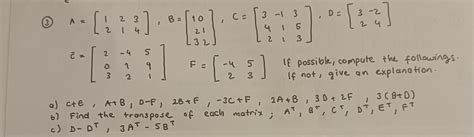 ③ A = [1 2 3; 2 1 4], B = [1 0; 2 1; 3 2], C = [3 -1 3; 4 1 5; 2 1 3], D = [3 -2; 2 4]
E = [2 -4 5; 0 1 4; 3 2 1] F = [-4 5; 2 3] If possible, compute the followings.
If not, give an explanation.
a) C+E, A+B, D-F, 2B+F, -3C+F, 2A+B, 3D+2F, 3(B+D)
b) Find the transpose of each matrix; Aᵀ, Bᵀ, Cᵀ, Dᵀ, Eᵀ, Fᵀ
c) D-Dᵀ, 3Aᵀ-5Bᵀ